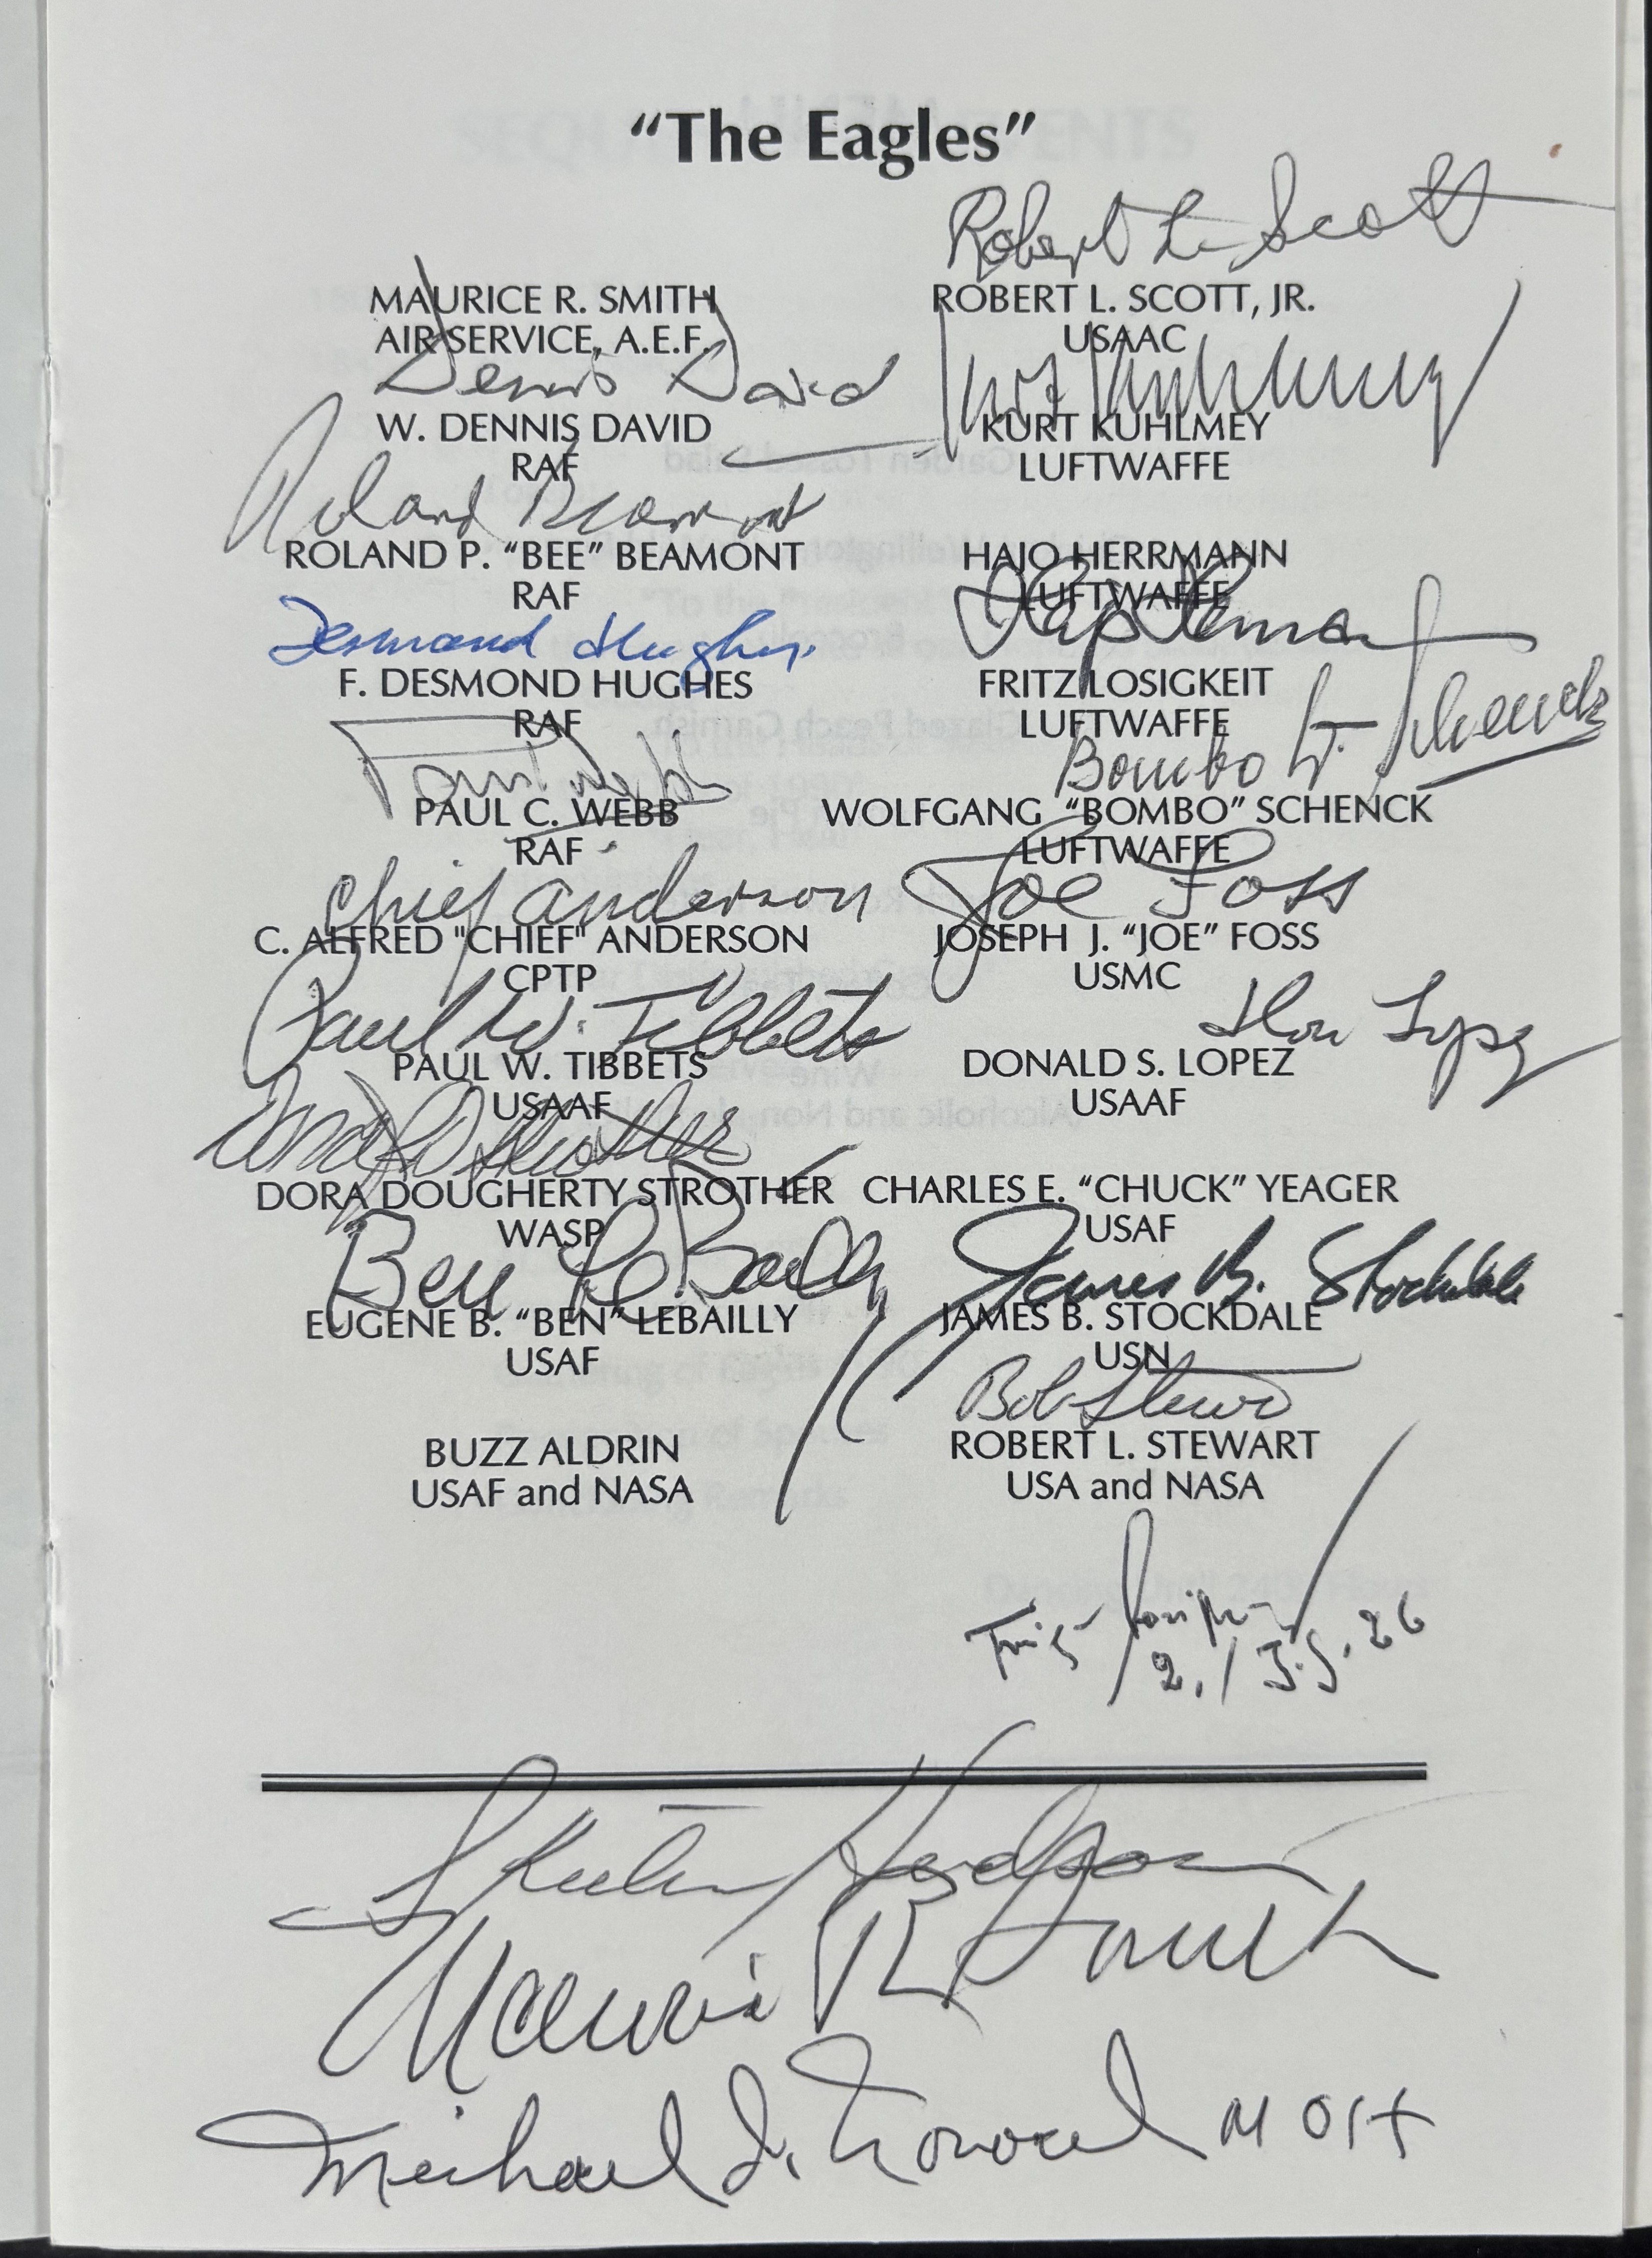 “The Eagles”
Robert L. Scott
MAURICE R. SMITH
AIR SERVICE, A.E.F.
ROBERT L. SCOTT, JR.
USAAC
Dennis David
Kurt Kuhlmey
W. DENNIS DAVID
RAF
KURT KUHLMEY
LUFTWAFFE
Roland Beamont
ROLAND P. “BEE” BEAMONT
RAF
HAJO HERRMANN
LUFTWAFFE
Desmond Hughes
Hajo Herrmann
F. DESMOND HUGHES
RAF
FRITZ LOSIGKEIT
LUFTWAFFE
Paul Webb
Bombo W. Schenck
PAUL C. WEBB
RAF
WOLFGANG “BOMBO” SCHENCK
LUFTWAFFE
Chief Anderson
Joe Foss
C. ALFRED "CHIEF" ANDERSON
CPTP
JOSEPH J. “JOE” FOSS
USMC
Paul W. Tibbets
Don Lopez
PAUL W. TIBBETS
USAAF
DONALD S. LOPEZ
USAAF
Dora D Strother
DORA DOUGHERTY STROTHER
WASP
CHARLES E. “CHUCK” YEAGER
USAF
Ben LeBailly
James B. Stockdale
EUGENE B. “BEN” LEBAILLY
USAF
JAMES B. STOCKDALE
USN
Bob Stewart
BUZZ ALDRIN
USAF and NASA
ROBERT L. STEWART
USA and NASA
Fritz Losigkeit
2./J.G. 26
Maurice R Smith
Michael J. Novosel MOH